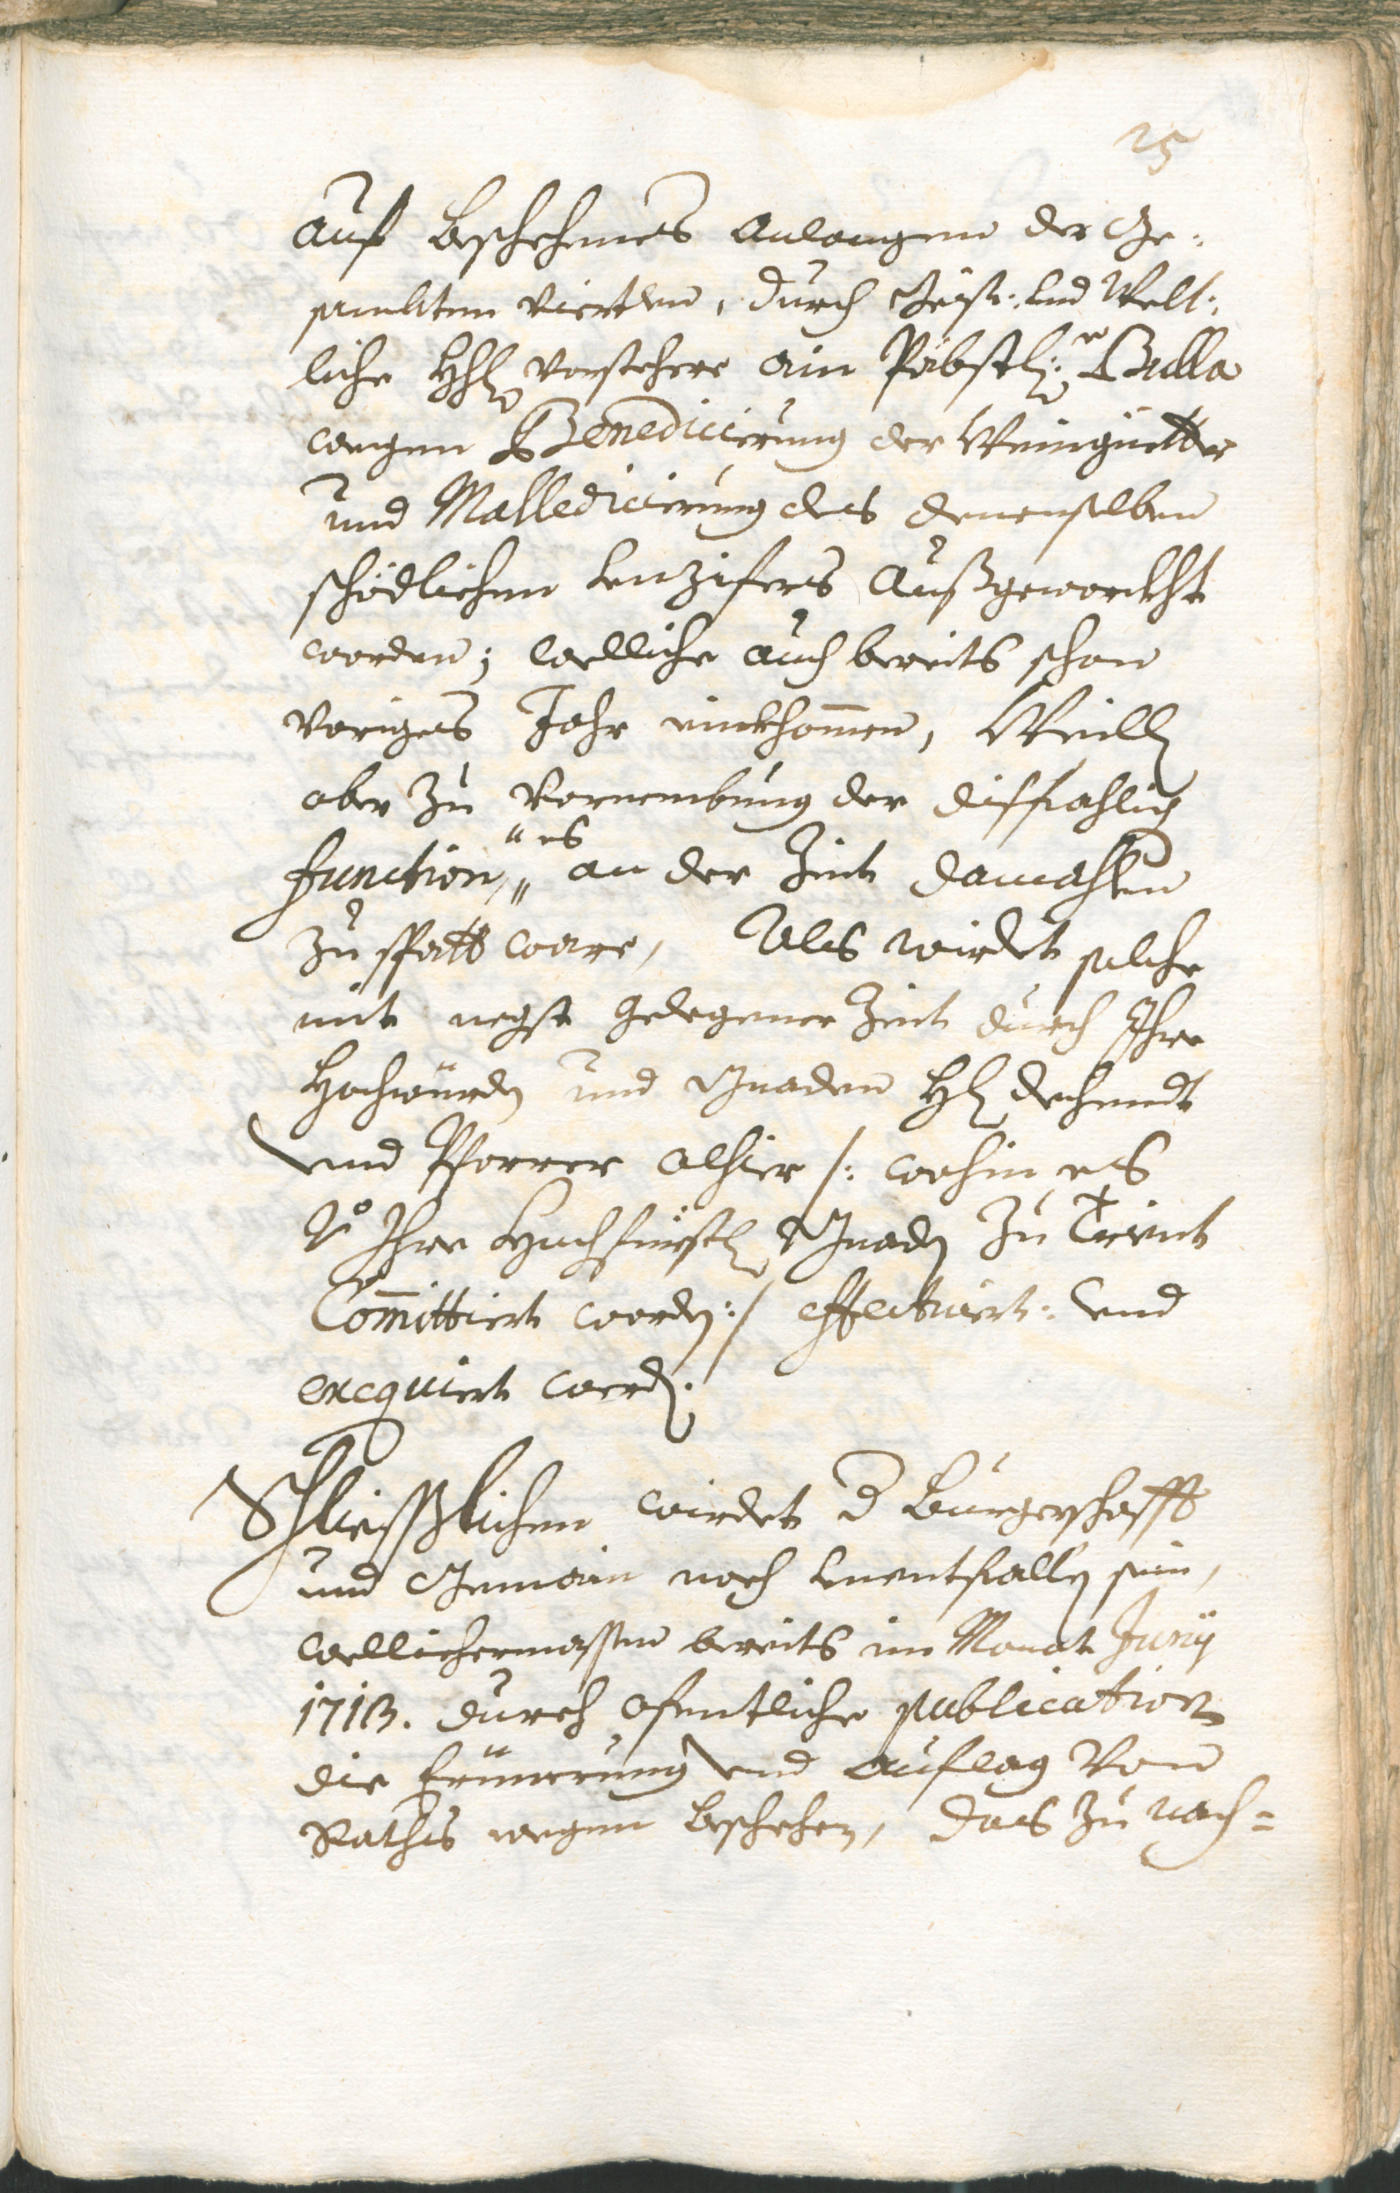 25
Auf beschehenes anlangen der Ge:
sambten Vierteln, durch Geist: und Welt:
liche Hhl Vorstehere ain Päbstl: Bulla
wegen Benedicierung der Weingüetter
und Malledicierung des denenselben
schödlichen Unzifers Außgeworckht
worden; welliche auch bereits schon
voriges Jahr einkhomen, Weill
aber zu vornembung der dissfahlig
function, es an der Zeit damahlen
zu spatt ware, Als wirdet solche
mit negst gelegener Zeit durch Ihre
Hochwürd und Gnaden Hl dechendt
und Pfarrer alhier /: wohin es
Vo Ihre Hochfürstl Gnad zu Trient
Committiert word :/ effectuiert: und
exequiert werd.
Schliesslichen wirdet d Burgerschafft
und Gemain noch unentfallen sein,
wellichermassen bereits im Monat Junij
1713. durch ofentliche publication
die Erinnerung und auflag von
Raths wegen beschehen, das zu nach=